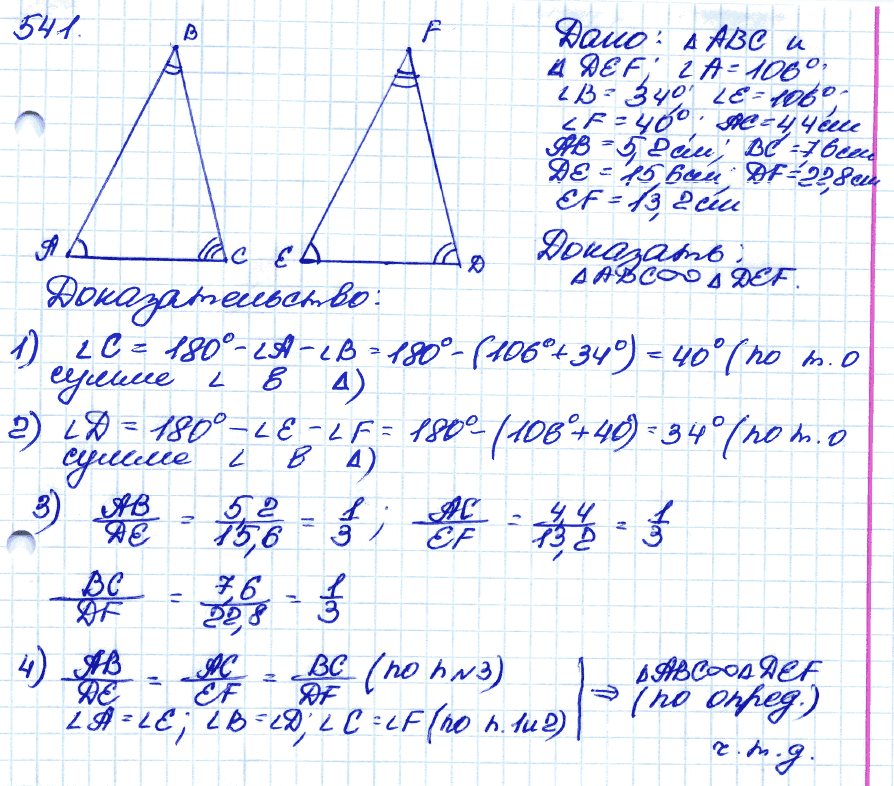 541.
B
F
A
C
E
D
Дано: △ ABC и
△ DEF; ∠A = 106°;
∠B = 34°; ∠E = 106°;
∠F = 40°; AC = 4,4 см
AB = 5,2 см; BC = 7,6 см
DE = 15,6 см; DF = 22,8 см
EF = 13,2 см
Доказать:
△ABC ∞ △DEF.
Доказательство:
1) ∠C = 180° - ∠A - ∠B = 180° - (106° + 34°) = 40° (по т. о
сумме ∠ в △)
2) ∠D = 180° - ∠E - ∠F = 180° - (106° + 40°) = 34° (по т. о
сумме ∠ в △)
3) AB/DE = 5,2/15,6 = 1/3; AC/EF = 4,4/13,2 = 1/3
BC/DF = 7,6/22,8 = 1/3
4) AB/DE = AC/EF = BC/DF (по п N3)
∠A = ∠E; ∠B = ∠D; ∠C = ∠F (по п. 1и2)
⇒ △ABC ∞ △DEF
(по опред.)
ч.т.д.